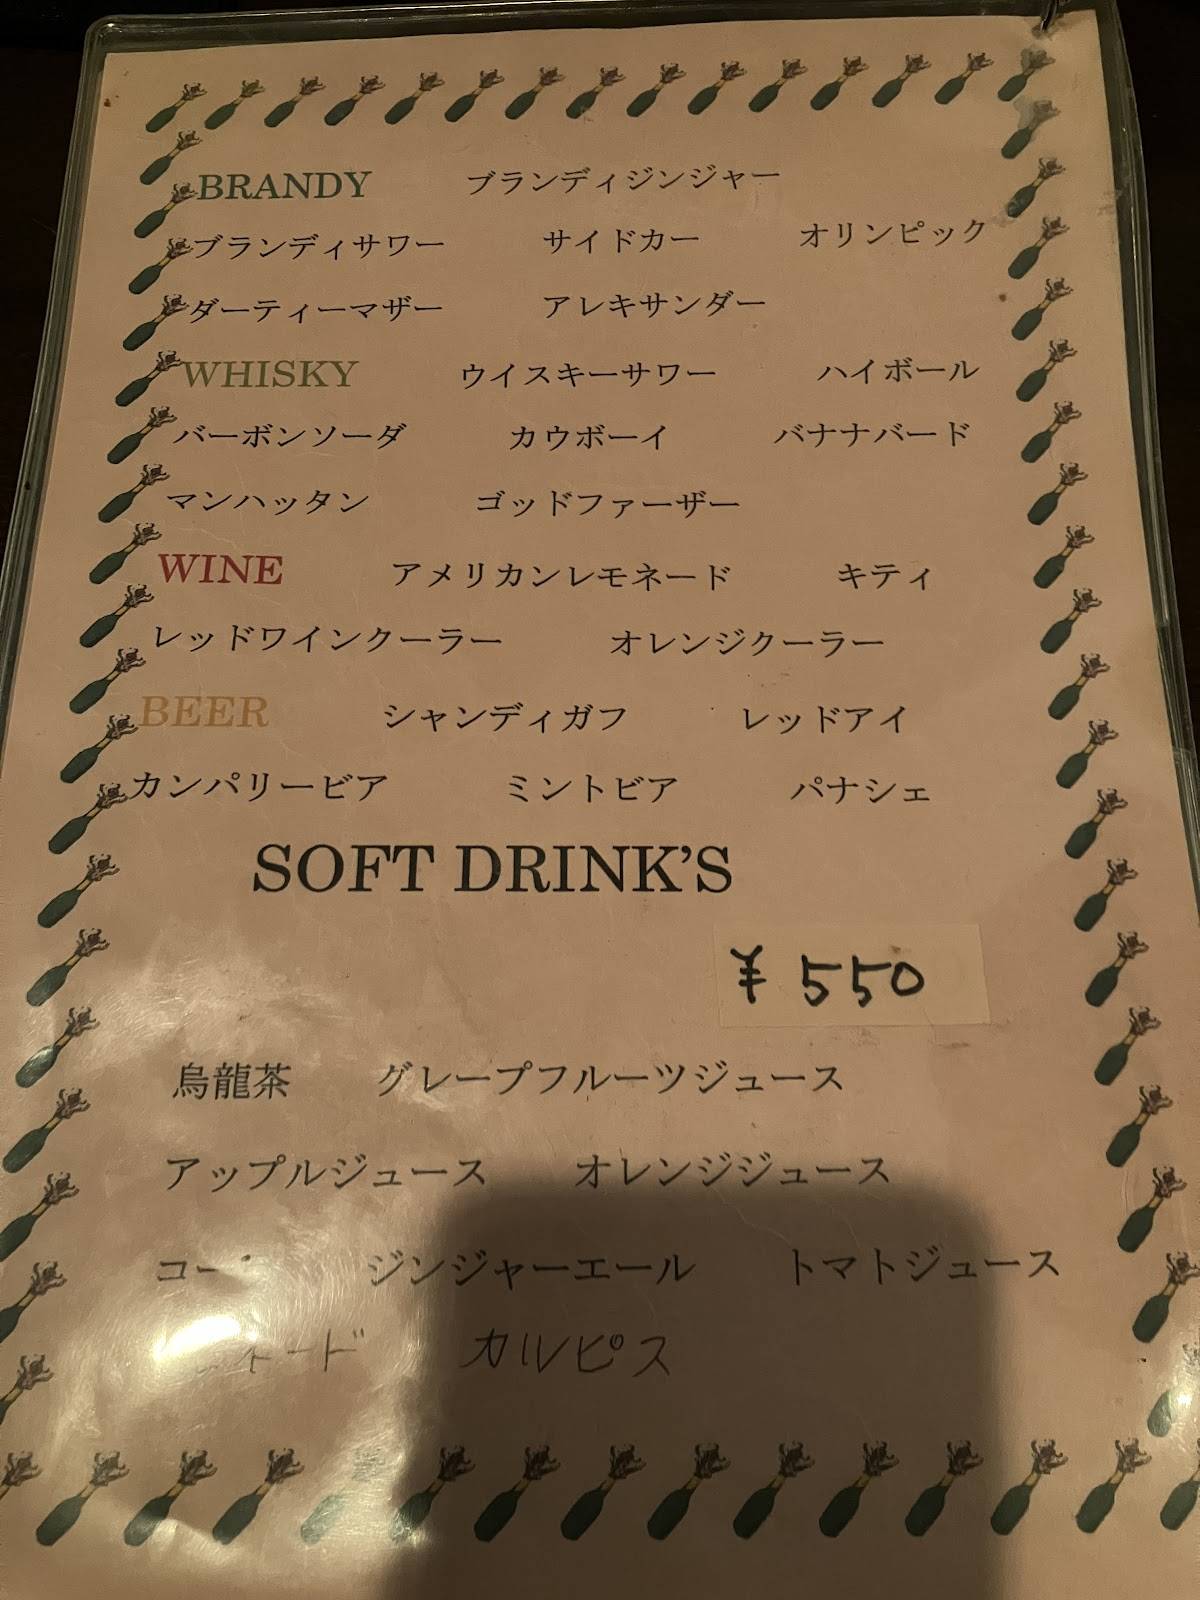 BRANDY ブランディジンジャー
ブランディサワー サイドカー オリンピック
ダーティーマザー アレキサンダー
WHISKY ウイスキーサワー ハイボール
バーボンソーダ カウボーイ バナナバード
マンハッタン ゴッドファーザー
WINE アメリカンレモネード キティ
レッドワインクーラー オレンジクーラー
BEER シャンディガフ レッドアイ
カンパリービア ミントビア パナシェ
SOFT DRINK'S
¥550
烏龍茶 グレープフルーツジュース
アップルジュース オレンジジュース
ジンジャーエール トマトジュース
カルピス